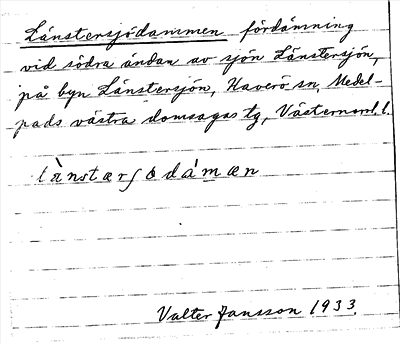 Länstersjödammen fördämning
vid södra ändan av sjön Länstersjön,
på byn Länstersjön, Haverö sn, Medel-
pads västra domsagas tg, Västernorrl. l.
lànstærʃödámæn
Valter Jansson 1933.